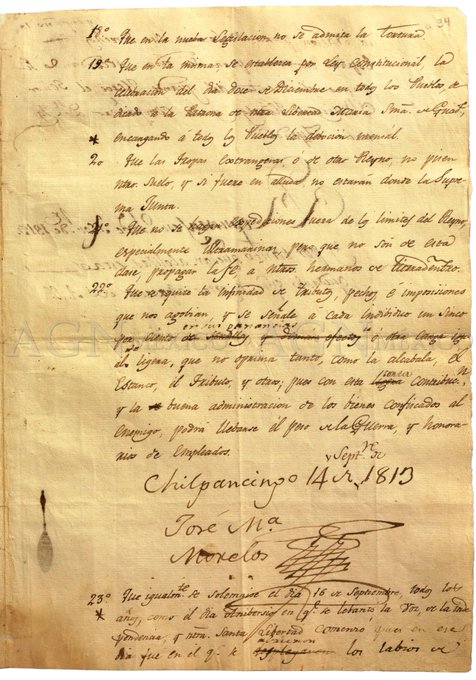 34
18º Que en la nueva Legislacion no se admita la tortura
19º Que en la misma se establezca por Ley Constitucional la
celebracion del dia doce de Diciembre en todos los Pueblos, de
dicado a la Patrona de ntra Libertad Maria Sma. de Guade
encargando a todos los Pueblos la devocion mensal
*
20 Que las tropas extrangeras, o de otro Reyno, no pisen
ntro. Suelo, y si fuere en ayuda, no estarán donde la Supre
ma Junta.
21º Que no se hagan expediciones fuera de los limites del Reyno,
especialmente Ultramarinas, pero que no son de esta
clase, propagar la fé a ntros. hermanos de tierradentro.
22º Que se quite la infinidad de tributos, pechos e imposiciones
que nos agobian, y se señale a cada individuo un cinco
por ciento en sus ganancias, u otra carga igu
al ligera, que no oprima tanto, como la alcabala, el
Estanco, el Tributo, y otros; pues con esta corta contribucn.
y la buena administracion de los bienes confiscados al
enemigo, podrá llebarse el peso de la Guerra, y honora
rios de empleados.
Chilpancingo 14 de Septre. de 1813
José Ma.
Morelos
23º Que igualmte. se solemnise el dia 16 de Septiembre, todos los
*
años, como el dia Anibersario en q. se lebantó la Voz de la Inde
pendencia, y ntra. Santa Libertad comenzó, pues en ese
dia fue en el q. se los labios de
AGN